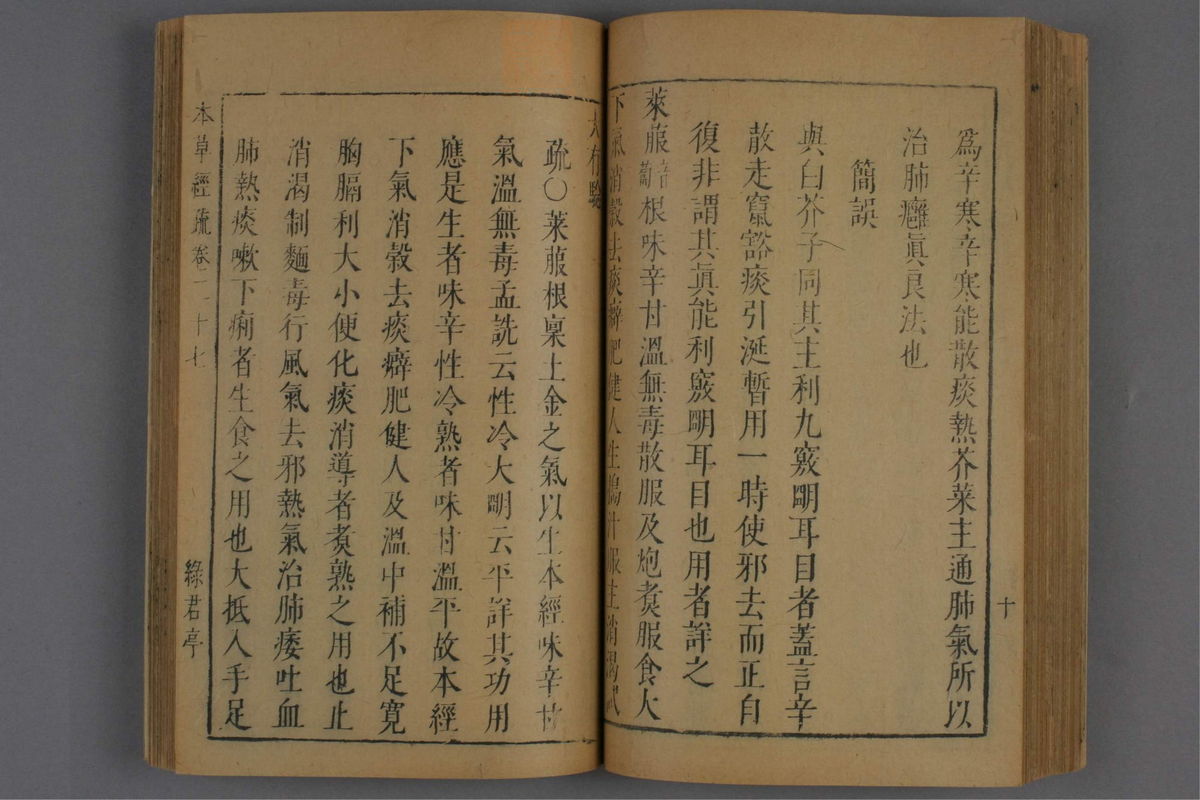 為辛寒辛寒能散痰熱芥菜主通肺氣所以
治肺癰眞良法也
簡誤
與白芥子同其主利九竅明耳目者蓋言辛
散走竄豁痰引涎暫用一時使邪去而正自
復非謂其眞能利竅明耳目也用者詳之
萊菔音蔔根味辛甘溫無毒散服及炮煑服食大
下氣消穀去痰癖肥健人生擣汁服主消渴試
大有驗
疏〇萊菔根稟土金之氣以生本經味辛甘
氣溫無毒孟詵云性冷大明云平詳其功用
應是生者味辛性冷熟者味甘溫平故本經
下氣消穀去痰癖肥健人及溫中補不足寬
胸膈利大小便化痰消導者煑熟之用也止
消渴制麵毒行風氣去邪熱氣治肺痿吐血
肺熱痰嗽下痢者生食之用也大抵入手足
本草經疏卷二十七
綠君亭
十